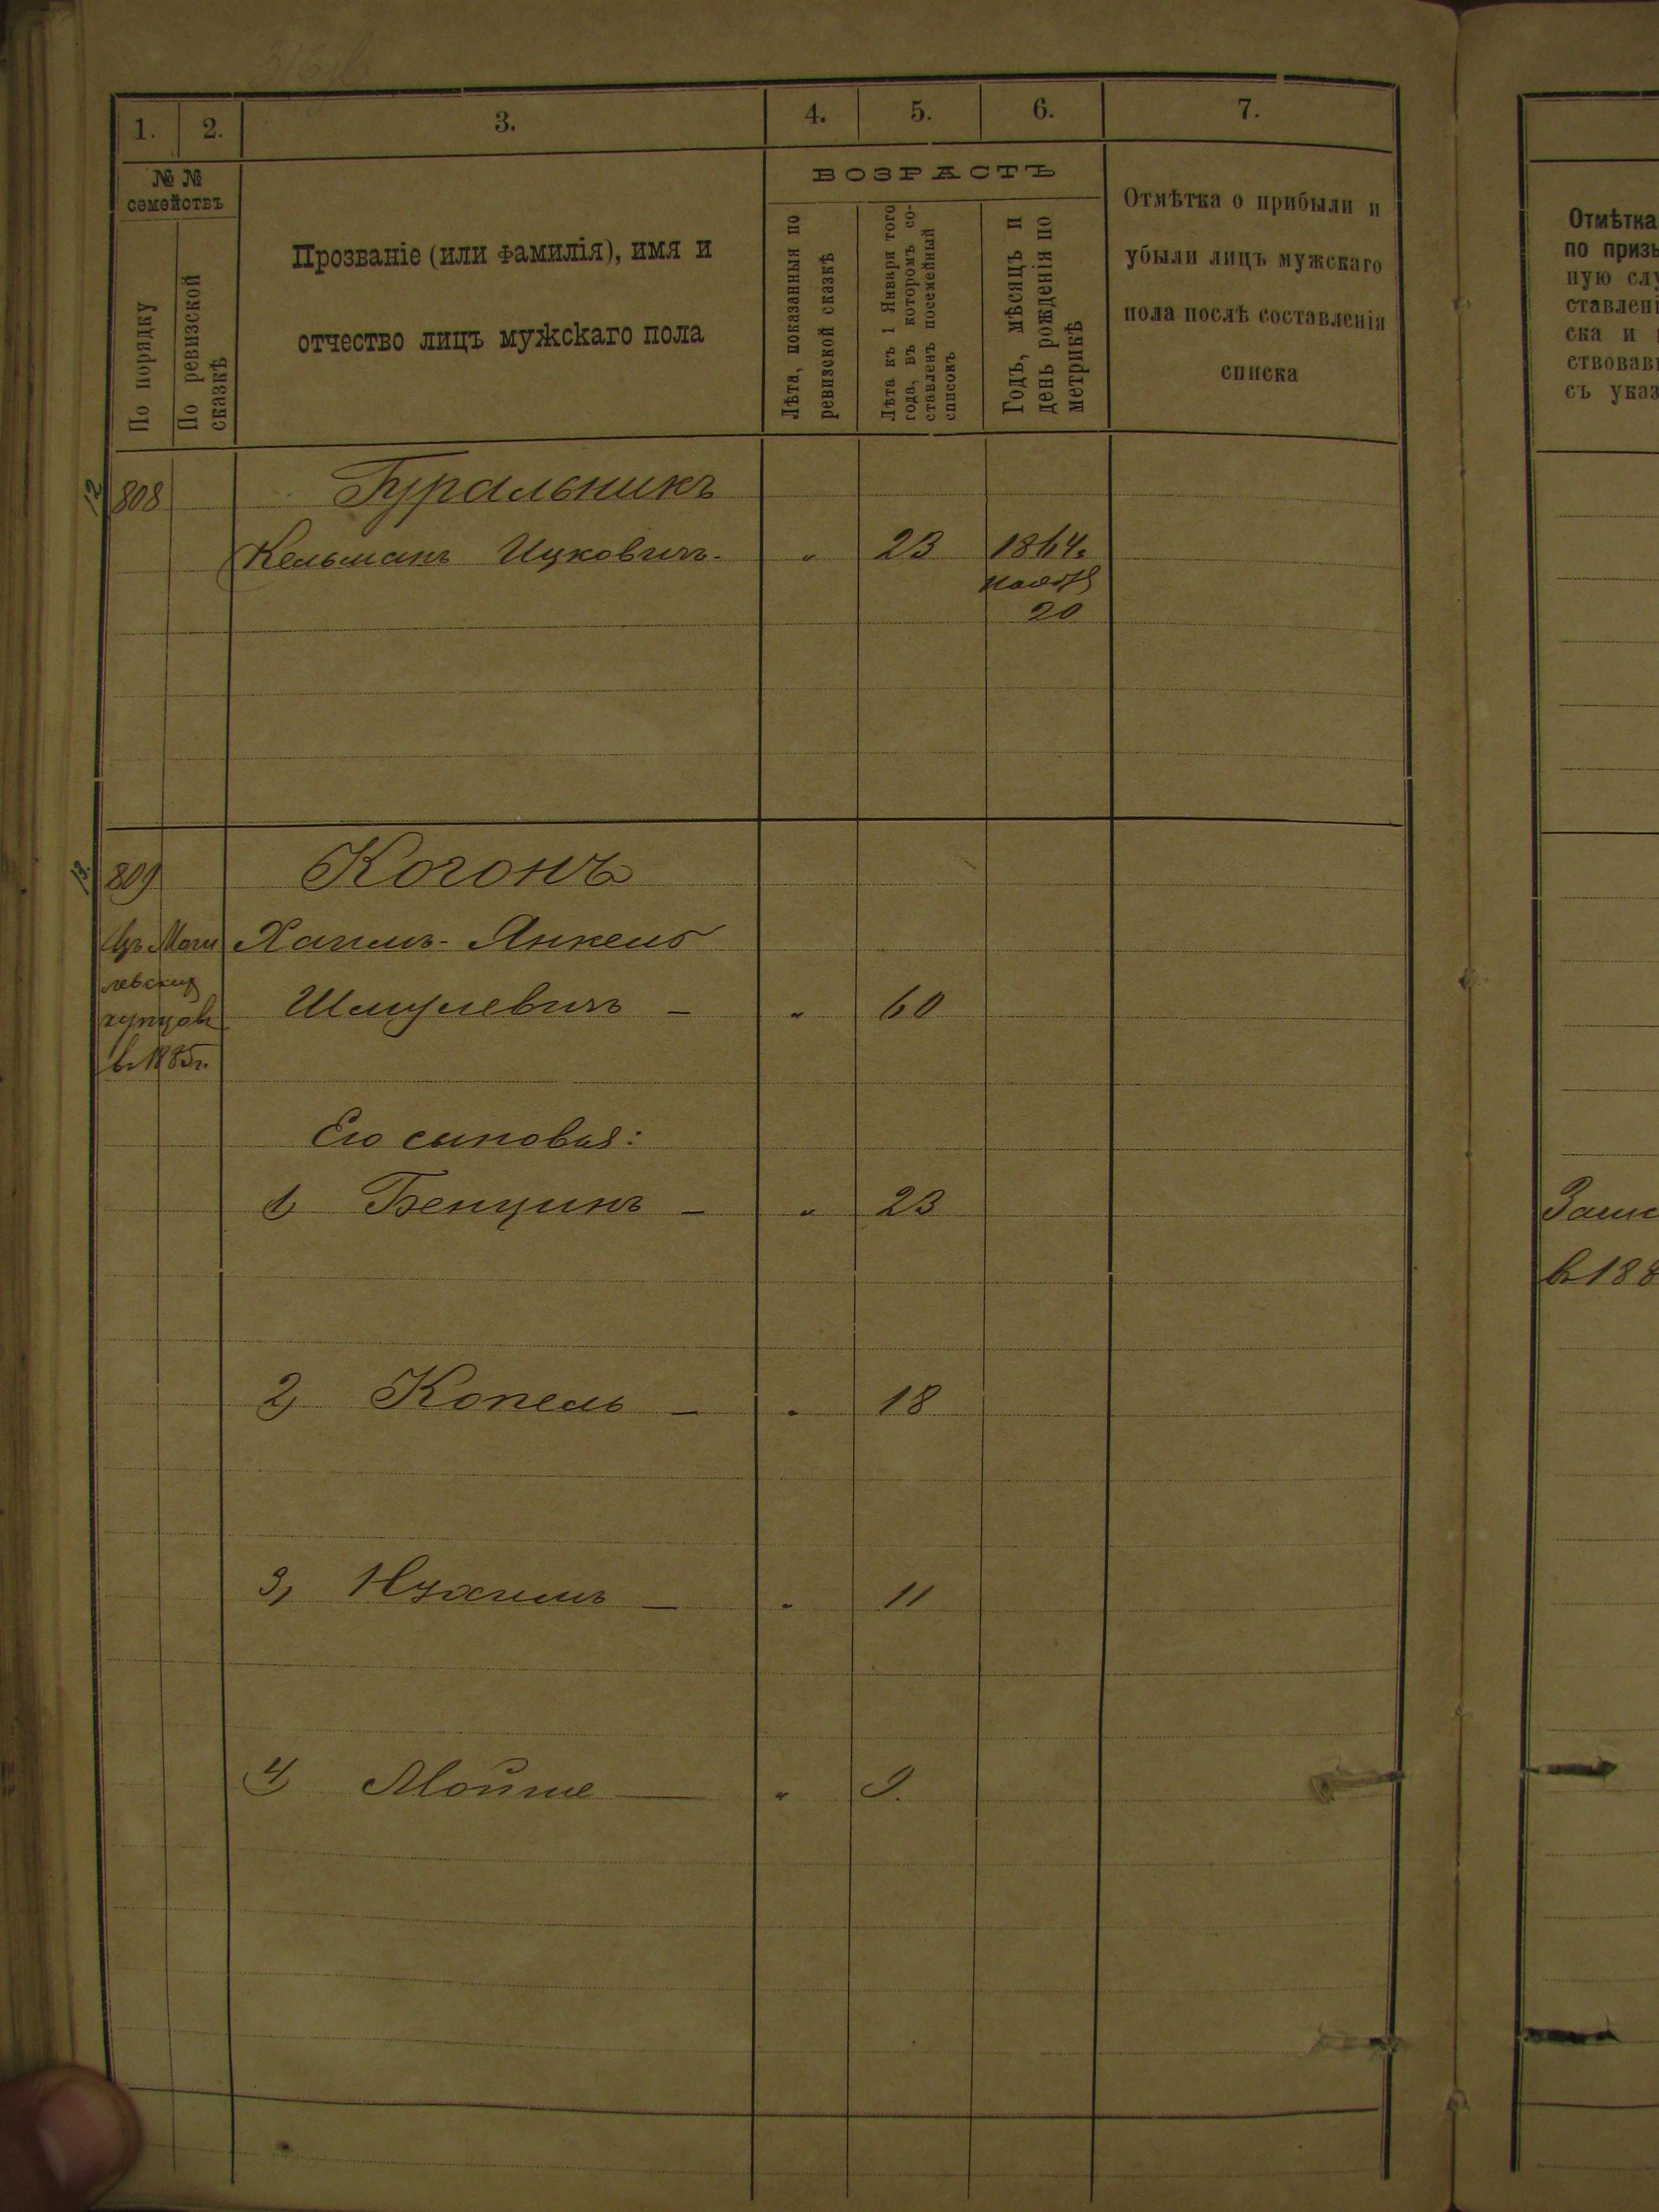 1. 2. 3. 4. 5. 6. 7.
№ №
семействъ
По порядку
По ревизской
сказкѣ
Прозваніе (или фамилія), имя и
отчество лицъ мужскаго пола
ВОЗРАСТЪ
Лѣта, показанныя по
ревизской сказкѣ
Лѣта къ 1 Января того
года, въ которомъ со-
ставленъ посемейный
списокъ
Годъ, мѣсяцъ и
день рожденія по
метрикѣ
Отмѣтка о прибыли и
убыли лицъ мужскаго
пола послѣ составленія
списка
12 808 Гуральникъ
Кельманъ Ицковичъ - " 23 1864.
ноября
20
13. 809 Когонъ
Изъ Моги Хаимъ - Янкель
левских
купцов Шмулевичъ - " 60
в 1885 г.
Его сыновья:
1) Бенцинъ - " 23
2) Копель - " 18
3) Нухимъ - " 11
4) Мойше - " 9.
Отмѣтка
по призы
ную слу
ставлені
ска и
ствовав
съ указ
в 188